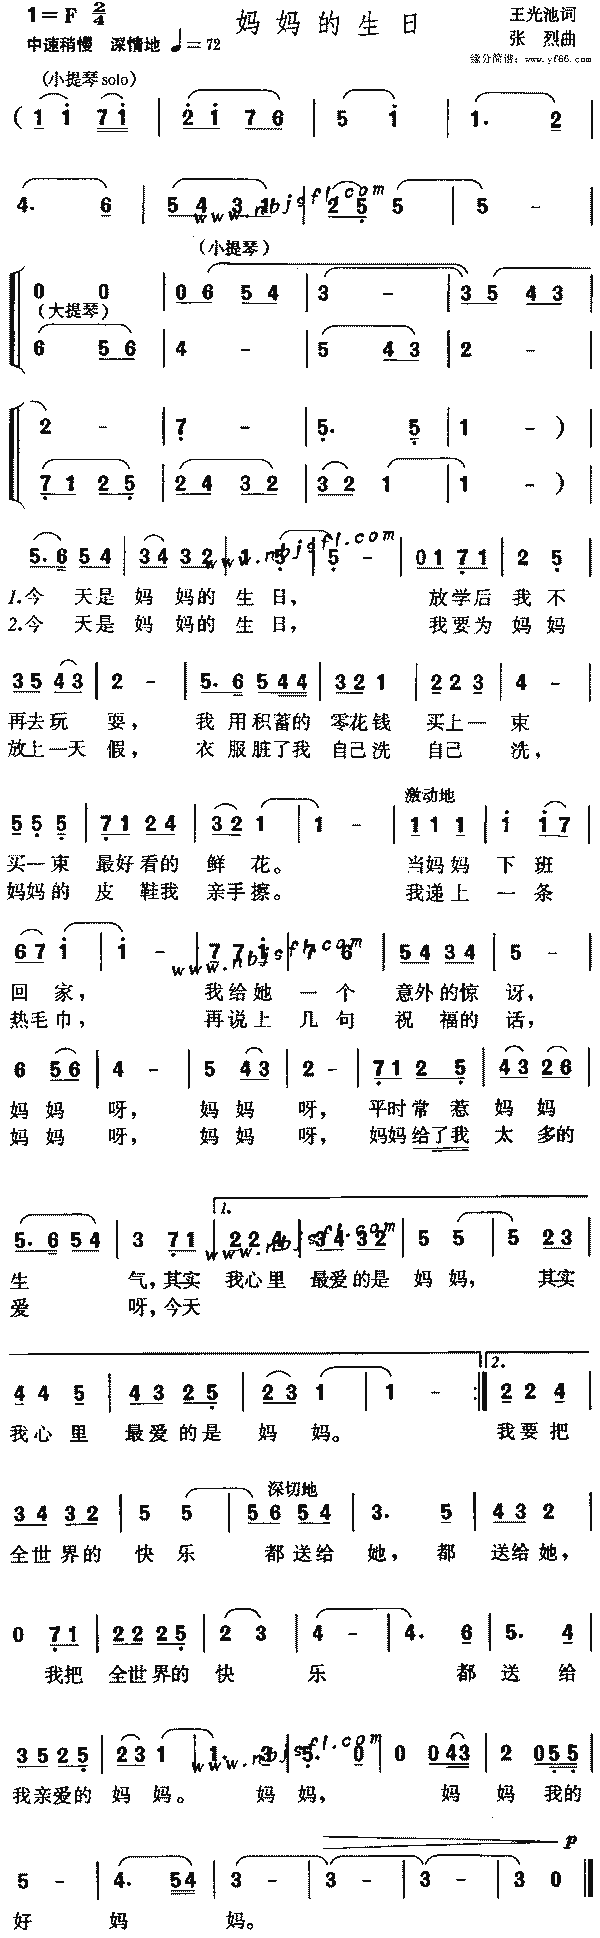 1=F 2/4 妈妈的生日 王光池词
中速稍慢 深情地 ♩=72 张 烈曲
缘分简谱:www.yf66.com
(小提琴solo)
( 1 i 7 i | 2 i 7 6 | 5 i | 1. 2 |
4. 6 | 5 4 3 1 | 2 5 5 | 5 - |
www.nbjsfl.com
(小提琴)
0 0 | 0 6 5 4 | 3 - | 3 5 4 3 |
(大提琴)
6 5 6 | 4 - | 5 4 3 | 2 - |
2 - | 7 - | 5. 5 | 1 - )
7 1 2 5 | 2 4 3 2 | 3 2 1 | 1 - )
5. 6 5 4 | 3 4 3 2 | 1 5 | 5 - | 0 1 7 1 | 2 5 |
www.nbjsfl.com
1.今 天是 妈 妈的 生 日, 放学后 我 不
2.今 天是 妈 妈的 生 日, 我要为 妈 妈
3 5 4 3 | 2 - | 5. 6 5 4 4 | 3 2 1 | 2 2 3 | 4 - |
再去玩 耍, 我 用积蓄的 零花钱 买上一 束
放上一天 假, 衣 服脏了我 自己洗 自己 洗,
激动地
5 5 5 | 7 1 2 4 | 3 2 1 | 1 - | 1 1 1 | i i 7 |
买一束 最好看的 鲜 花。 当妈妈 下 班
妈妈的 皮 鞋我 亲手擦。 我递上 一 条
6 7 i | i - | 7 7 i | 7 6 | 5 4 3 4 | 5 - |
www.nbjsfl.com
回 家, 我给她 一 个 意外的惊 讶,
热毛巾, 再说上 几 句 祝 福的 话,
6 5 6 | 4 - | 5 4 3 | 2 - | 7 1 2 5 | 4 3 2 6 |
妈 妈 呀, 妈 妈 呀, 平时常 惹 妈 妈
妈 妈 呀, 妈 妈 呀, 妈妈给了我 太 多的
1.
5. 6 5 4 | 3 7 1 | 2 2 4 | 3 4 3 2 | 5 5 | 5 2 3 |
www.nbjsfl.com
生 气,其实 我心里 最爱的是 妈 妈, 其实
爱 呀,今天
2.
4 4 5 | 4 3 2 5 | 2 3 1 | 1 - :‖ 2 2 4 |
我心 里 最爱 的是 妈 妈。 我要把
深切地
3 4 3 2 | 5 5 | 5 6 5 4 | 3. 5 | 4 3 2 |
全世界的 快 乐 都送给 她, 都 送给她,
0 7 1 | 2 2 2 5 | 2 3 | 4 - | 4. 6 | 5. 4 |
我把 全世界的 快 乐 都 送 给
3 5 2 5 | 2 3 1 | 1. 3 | 5. 0 | 0 0 4 3 | 2 0 5 5 |
www.nbjsfl.com
我亲爱的 妈 妈。 妈 妈, 妈 妈 我的
p
5 - | 4. 5 4 | 3 - | 3 - | 3 - | 3 0 ‖
好 妈 妈。